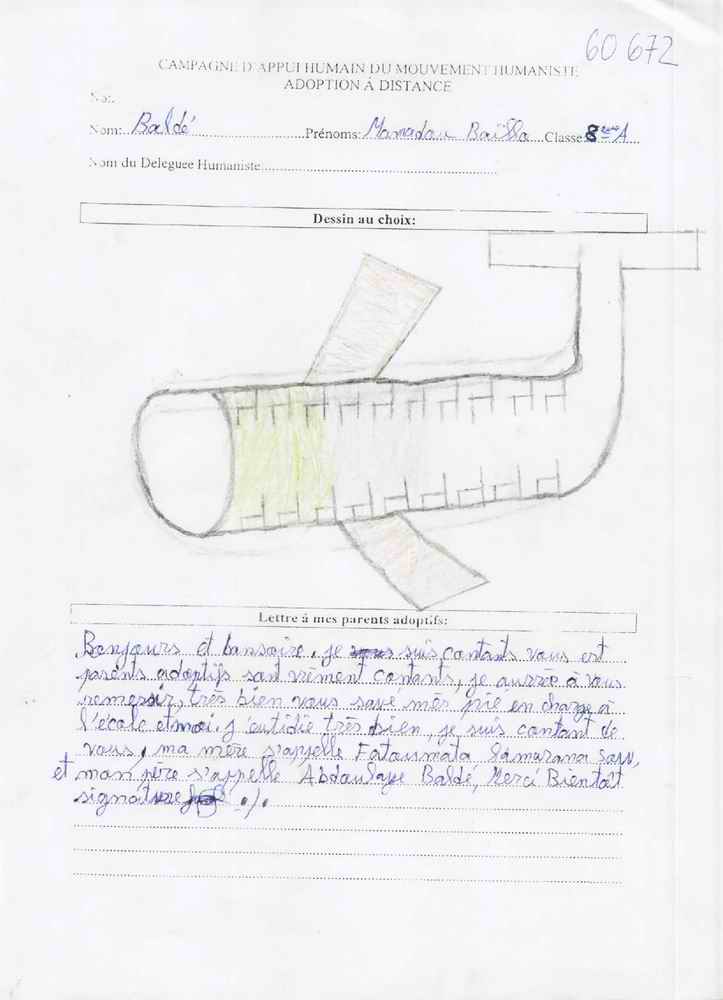 60 672
CAMPAGNE D'APPUI HUMAIN DU MOUVEMENT HUMANISTE
ADOPTION Á DISTANCE
No:.
Nom: Baldé Prénoms: Mamadou Baïlla Classe 8ème A
Nom du Deleguee Humaniste:
Dessin au choix:
Lettre á mes parents adoptifs:
Bonjours et bonsoire, je suis contants vous est
parents adoptifs sont vrèment contants, je aurre à vous
remersir, très bien vous savé mès prié en charge à
l'école et moi. J'eutidié très bien, je suis contant de
vous, ma mère s'appelle Fatoumata Samarana Sow,
et mon père s'appelle Abdoulaye Baldé, Merci Bientôt
signature